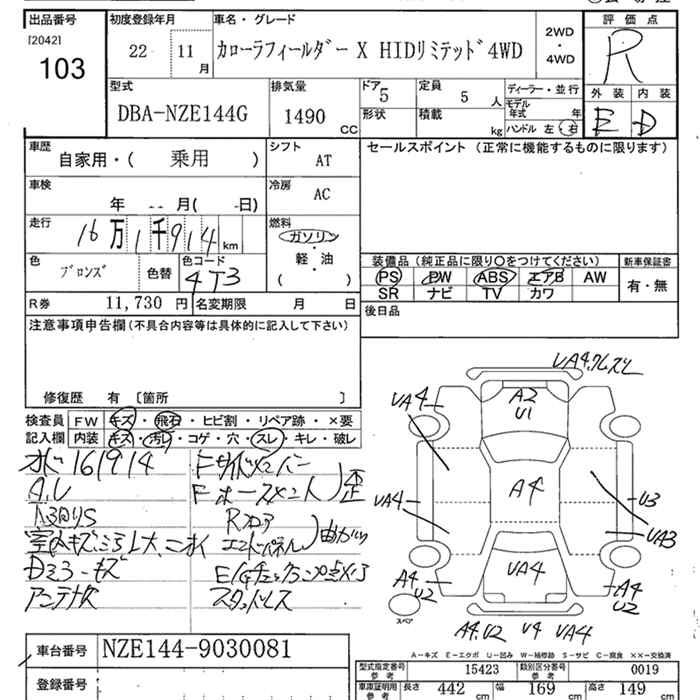 出品番号 初度登録年月 車名・グレード 評価点
[2042] 103
22 11月 カローラフィールダー X HIDリミテッド4WD 2WD・4WD R
型式 排気量 ドア 5 定員 5人 ディーラー・並行 外装 内装
DBA-NZE144G 1490 CC 形状 積載 kg モデル年式 年 E D
ハンドル 左 右
車歴 自家用・( 乗用 ) シフト AT セールスポイント (正常に機能するものに限ります)
車検 年 -- 月( -日) 冷房 AC
走行 16万1千914km 燃料 ガソリン
軽・油
( )
色 ブロンズ 色替 色コード 4T3
装備品 (純正品に限り○をつけてください) 新車保証書
PS PW ABS エアB AW 有・無
SR ナビ TV カワ
R券 11,730 円 名変期限 月 日 後日品
注意事項申告欄 (不具合内容等は具体的に記入して下さい)
修復歴 有 [箇所 ]
検査員 FW キズ・飛石・ヒビ割・リペア跡・×要
記入欄 内装 キズ・汚レ・コゲ・穴・スレ・キレ・破レ
161914 Fサイドメンバー
歪
Rフロア
エンドパネル 曲がり
Dミラーキズ
アンテナ欠 スタッドレス
VA4
A2
U1
VA4
A4
VA4
U3
VA3
VA4
A4
U2
A4
U2
スペア
A4.U2 V4 VA4
A-キズ E-エクボ U-凹み W-補修跡 S-サビ C-腐食 XX-交換済
車台番号 NZE144-9030081
登録番号
型式指定番号 参考 15423 類別区分番号 参考 0019
車庫証明用 参考 長さ 442 cm 幅 169 cm 高さ 149 cm